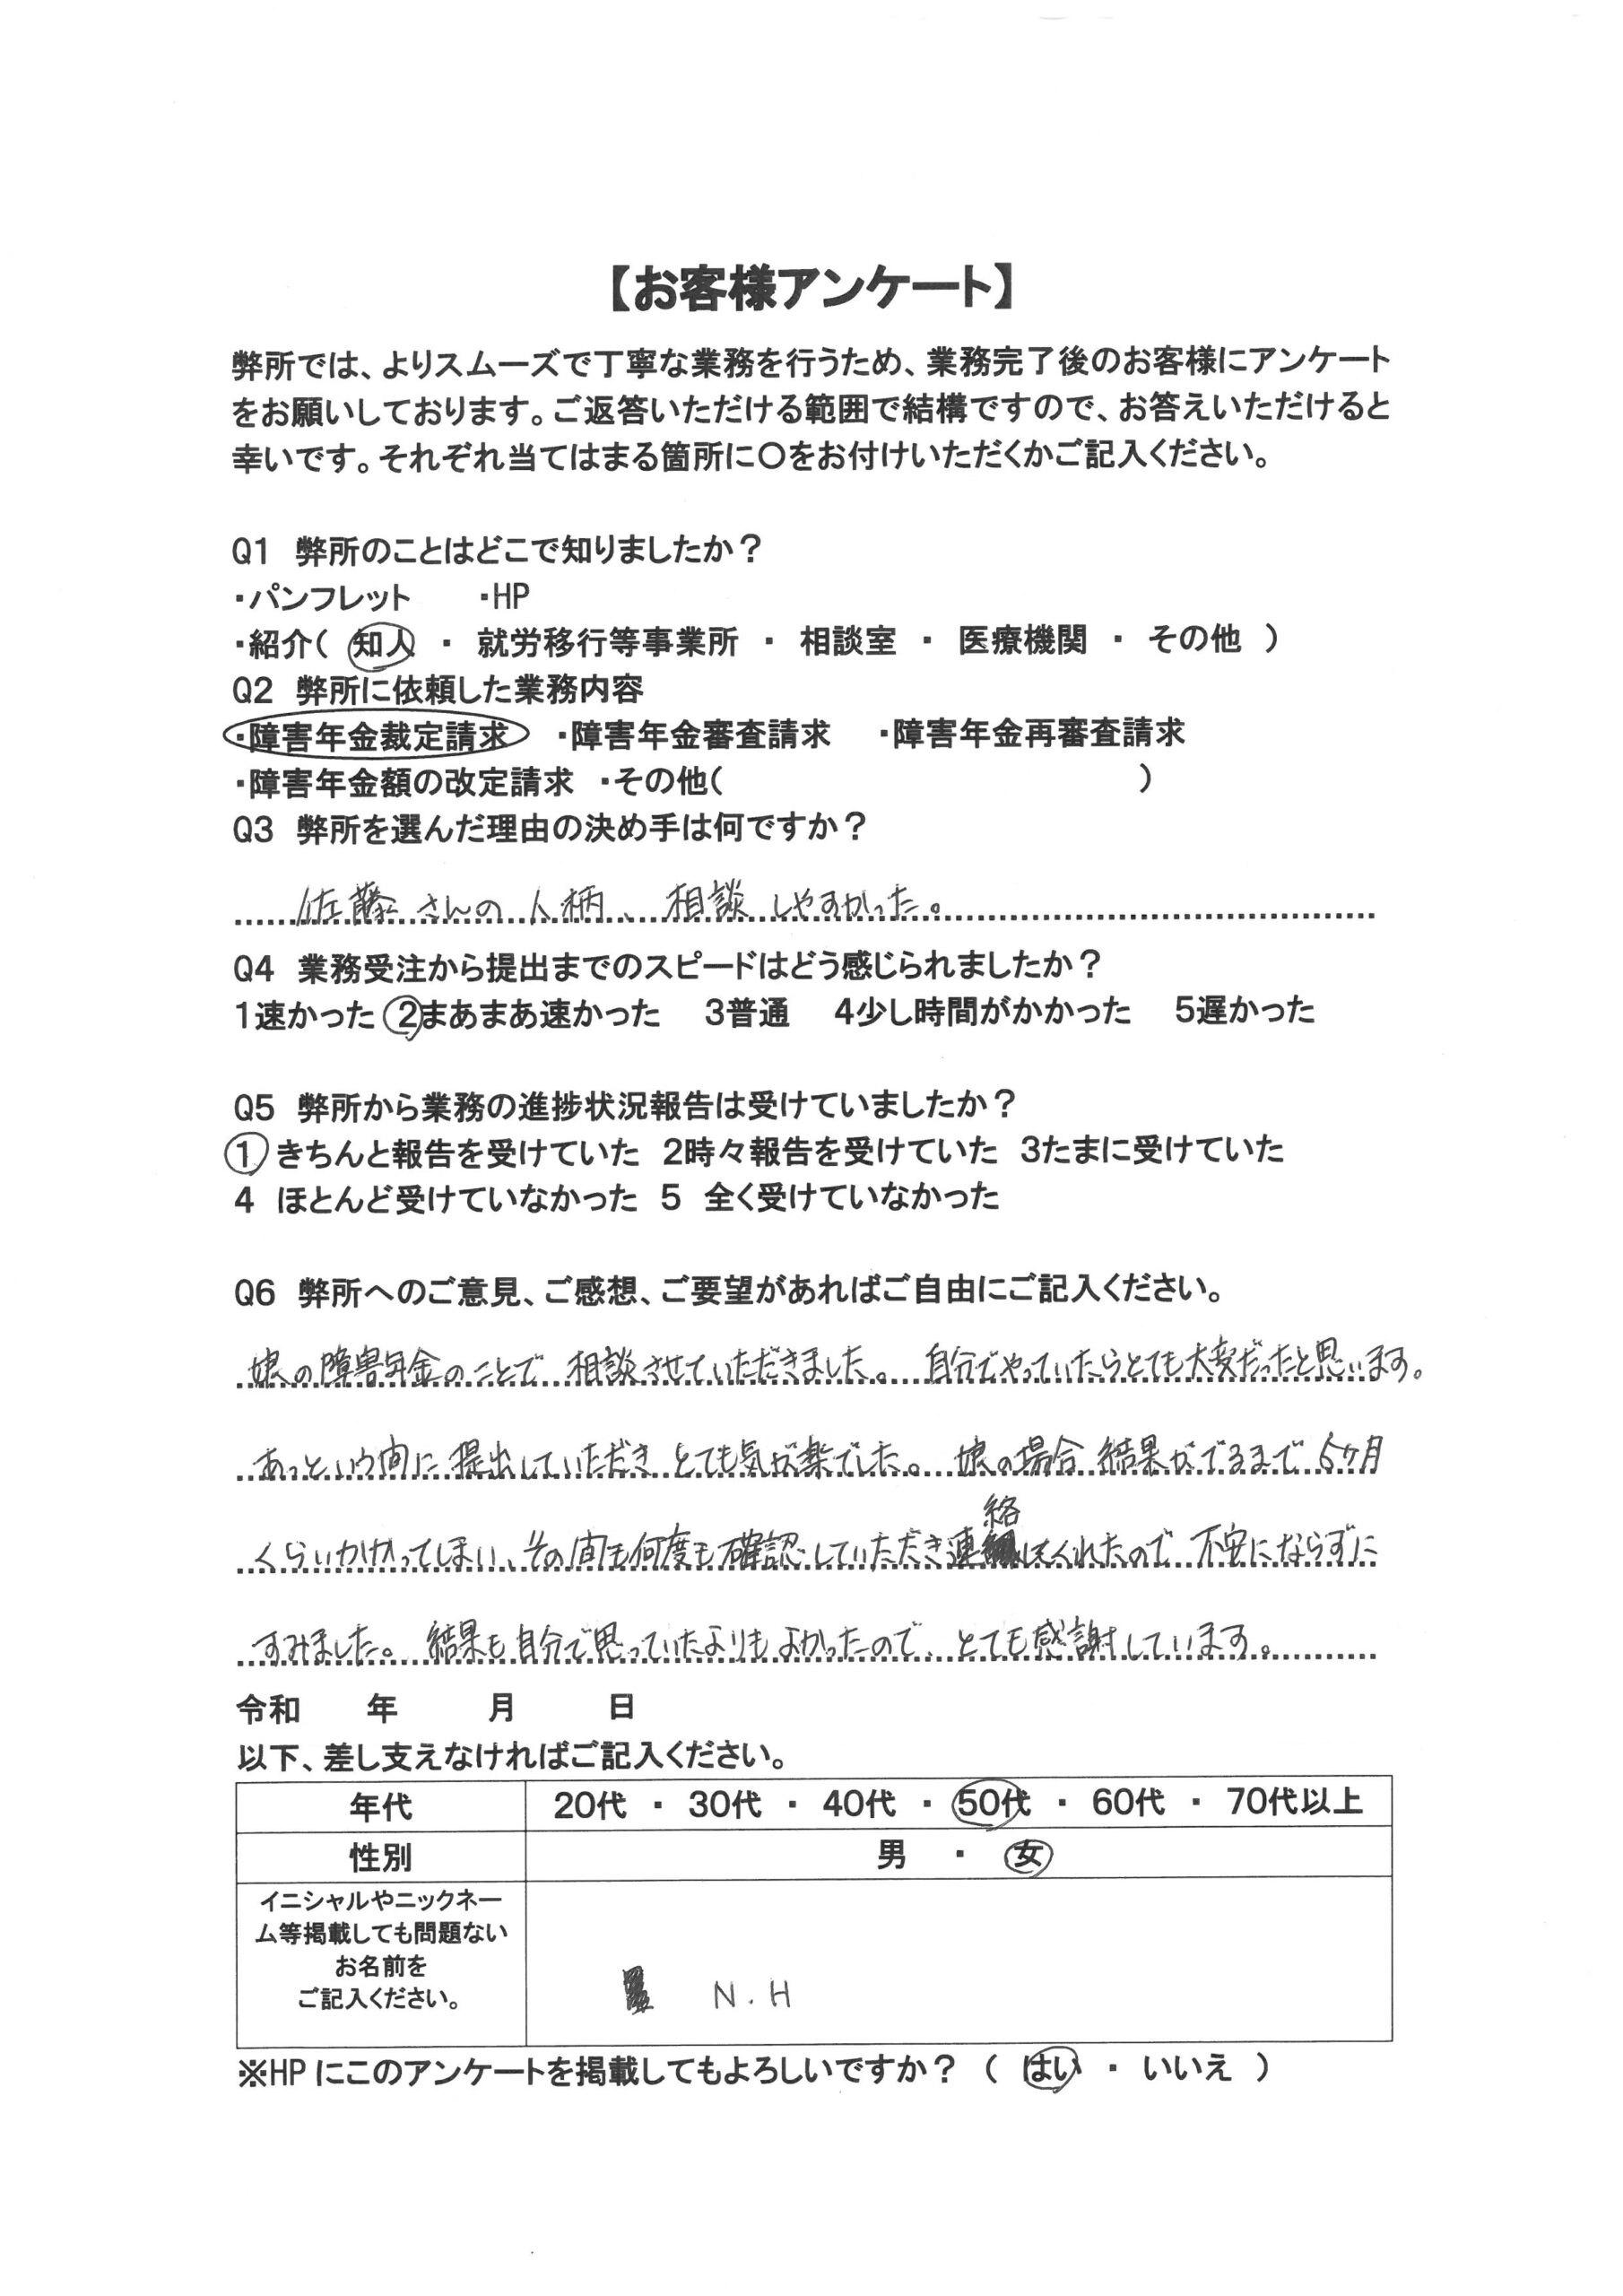 【お客様アンケート】
弊所では、よりスムーズで丁寧な業務を行うため、業務完了後のお客様にアンケート
をお願いしております。ご返答いただける範囲で結構ですので、お答えいただけると
幸いです。それぞれ当てはまる箇所に〇をお付けいただくかご記入ください。
Q1 弊所のことはどこで知りましたか？
・パンフレット ・HP
・紹介( 知人 ・ 就労移行等事業所 ・ 相談室 ・ 医療機関 ・ その他 )
Q2 弊所に依頼した業務内容
・障害年金裁定請求 ・障害年金審査請求 ・障害年金再審査請求
・障害年金額の改定請求 ・その他( )
Q3 弊所を選んだ理由の決め手は何ですか？
佐藤さんの人柄、相談しやすかった。
Q4 業務受注から提出までのスピードはどう感じられましたか？
1速かった 2まあまあ速かった 3普通 4少し時間がかかった 5遅かった
Q5 弊所から業務の進捗状況報告は受けていましたか？
1 きちんと報告を受けていた 2時々報告を受けていた 3たまに受けていた
4 ほとんど受けていなかった 5 全く受けていなかった
Q6 弊所へのご意見、ご感想、ご要望があればご自由にご記入ください。
娘の障害年金のことで相談させていただきました。自分でやっていたらとても大変だったと思います。
あっという間に提出していただきとても気が楽でした。娘の場合結果がでるまで ヶ月
くらいかかってしまい、その間も何度も確認していただき連絡はくれたので不安にならずに
すみました。結果も自分で思っていたよりもよかったので、とても感謝しています。
令和 年 月 日
以下、差し支えなければご記入ください。
年代 20代 ・ 30代 ・ 40代 ・ 50代 ・ 60代 ・ 70代以上
性別 男 ・ 女
イニシャルやニックネー
ム等掲載しても問題ない
お名前を
ご記入ください。
N.H
※HPにこのアンケートを掲載してもよろしいですか？ ( はい ・ いいえ )